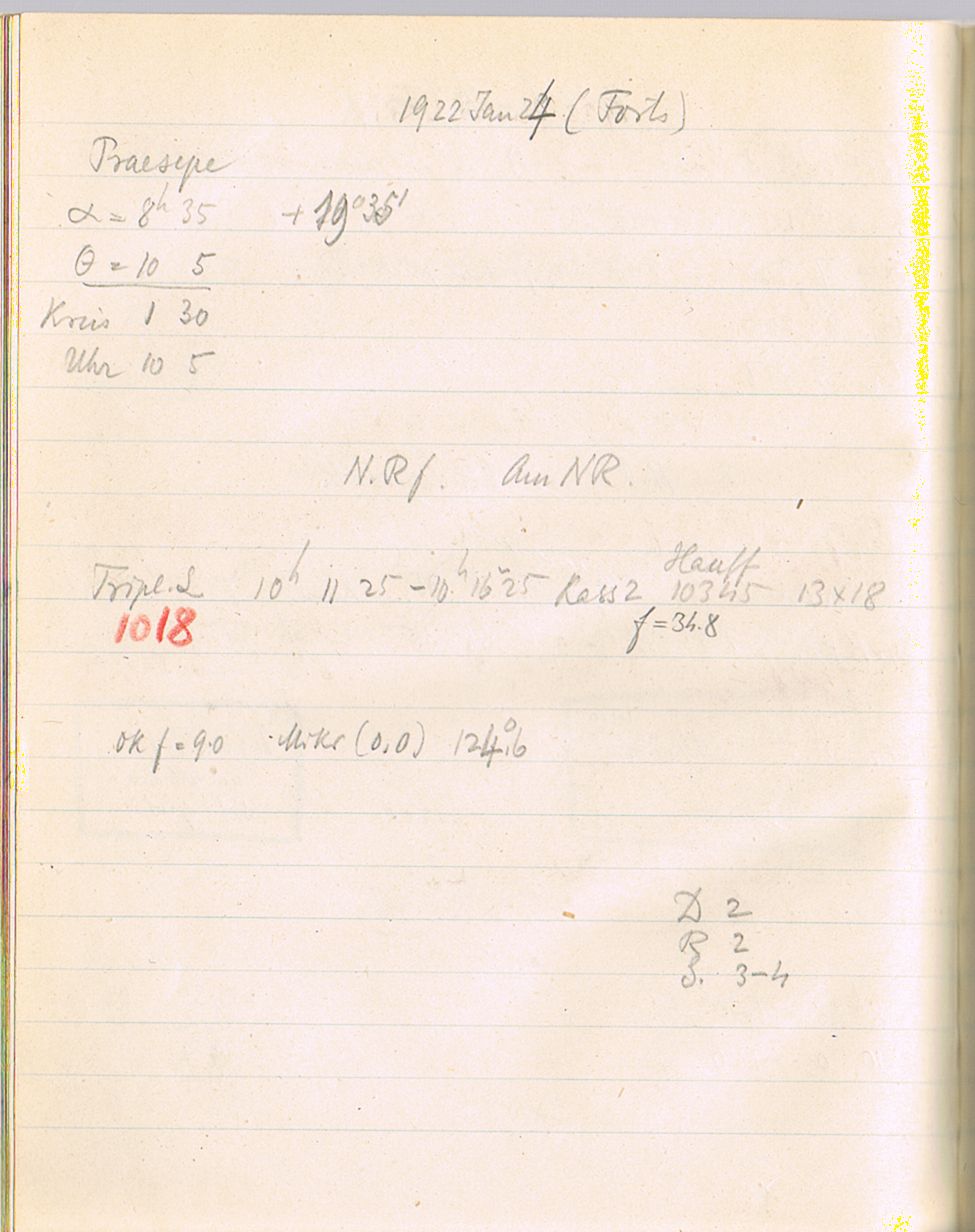 1922 Jan 24 (Forts)
Praesepe
α = 8ʰ 35 + 19° 35'
θ = 10 5
Kreis 1 30
Uhr 10 5
N.Rf. Am NR.
Hauff
Tripl. L 10ʰ 11 25 – 10ʰ 16ᵐ 25 Kass 2 10345 13×18
1018 f = 34.8
ok f = 9.0 Mikr (0,0) 124°.6
D 2
R 2
S. 3–4